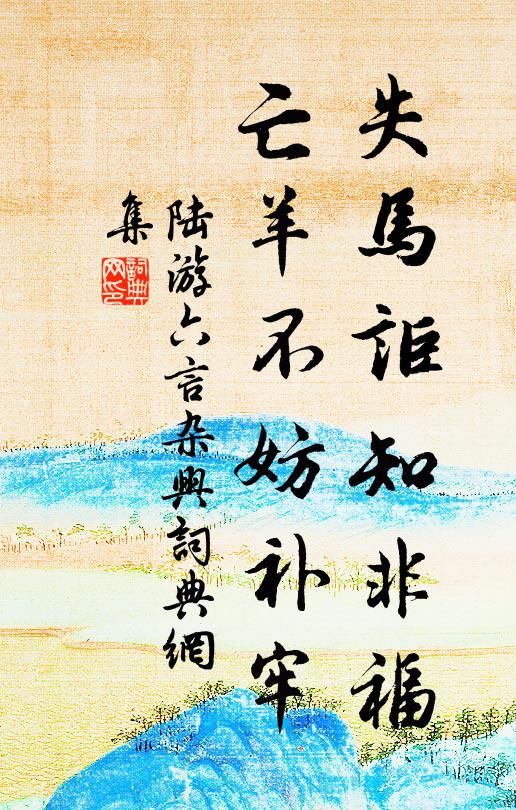 失馬詎知非福
亡羊不妨补牢
陆游六言杂興詞典網
集
詞典
网印